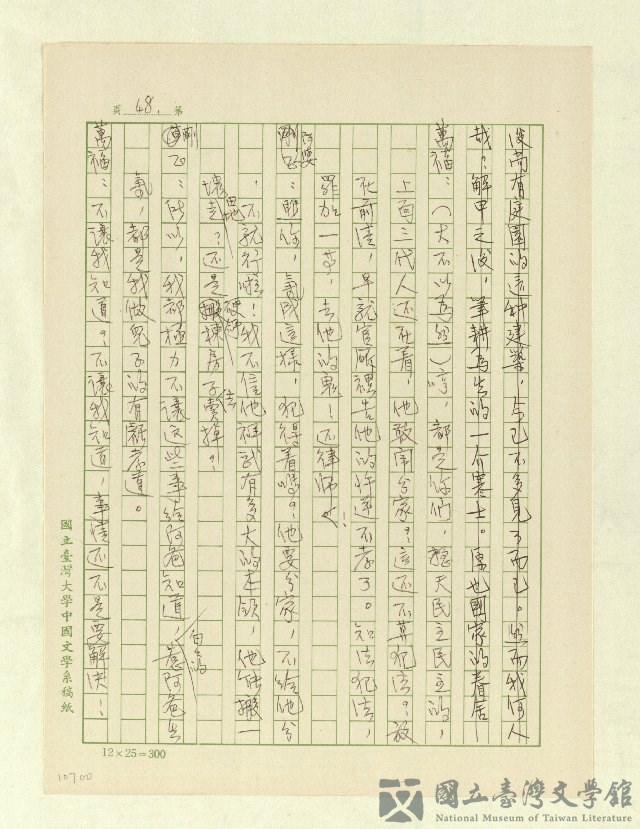 第 48. 頁
後尚有庭園的這種建築,占已不多見了而已。然而我何人
哉?解甲之後,筆耕為生的一介寒士。陳也國家的眷居!
萬福:(大不以為然)哼 都是你們,整天民主民主的,
上面三代人還在着,他敢鬧分家?這還不算犯法?放
在前清,早就官府裡告他的忤逆不孝了。知法犯法,
罪加一等,去他的鬼!还律師!
:即你,氣成這樣,犯得着嗎?他要分家,不給他分
,不就行啦!我不信他祥武有多大的本領,他能搬一
塊走?还是棟房子賣掉?
剛正:所以,我都極力不讓這些事給阿爸知道,惹阿爸生
氣,都是我做兒子的有虧孝道。
萬福:不讓我知道?不讓我知道,事情还不是要解決!
國立臺灣大學中國文學系稿紙
12×25=300
10700
國立臺灣文學館
National Museum of Taiwan Literature